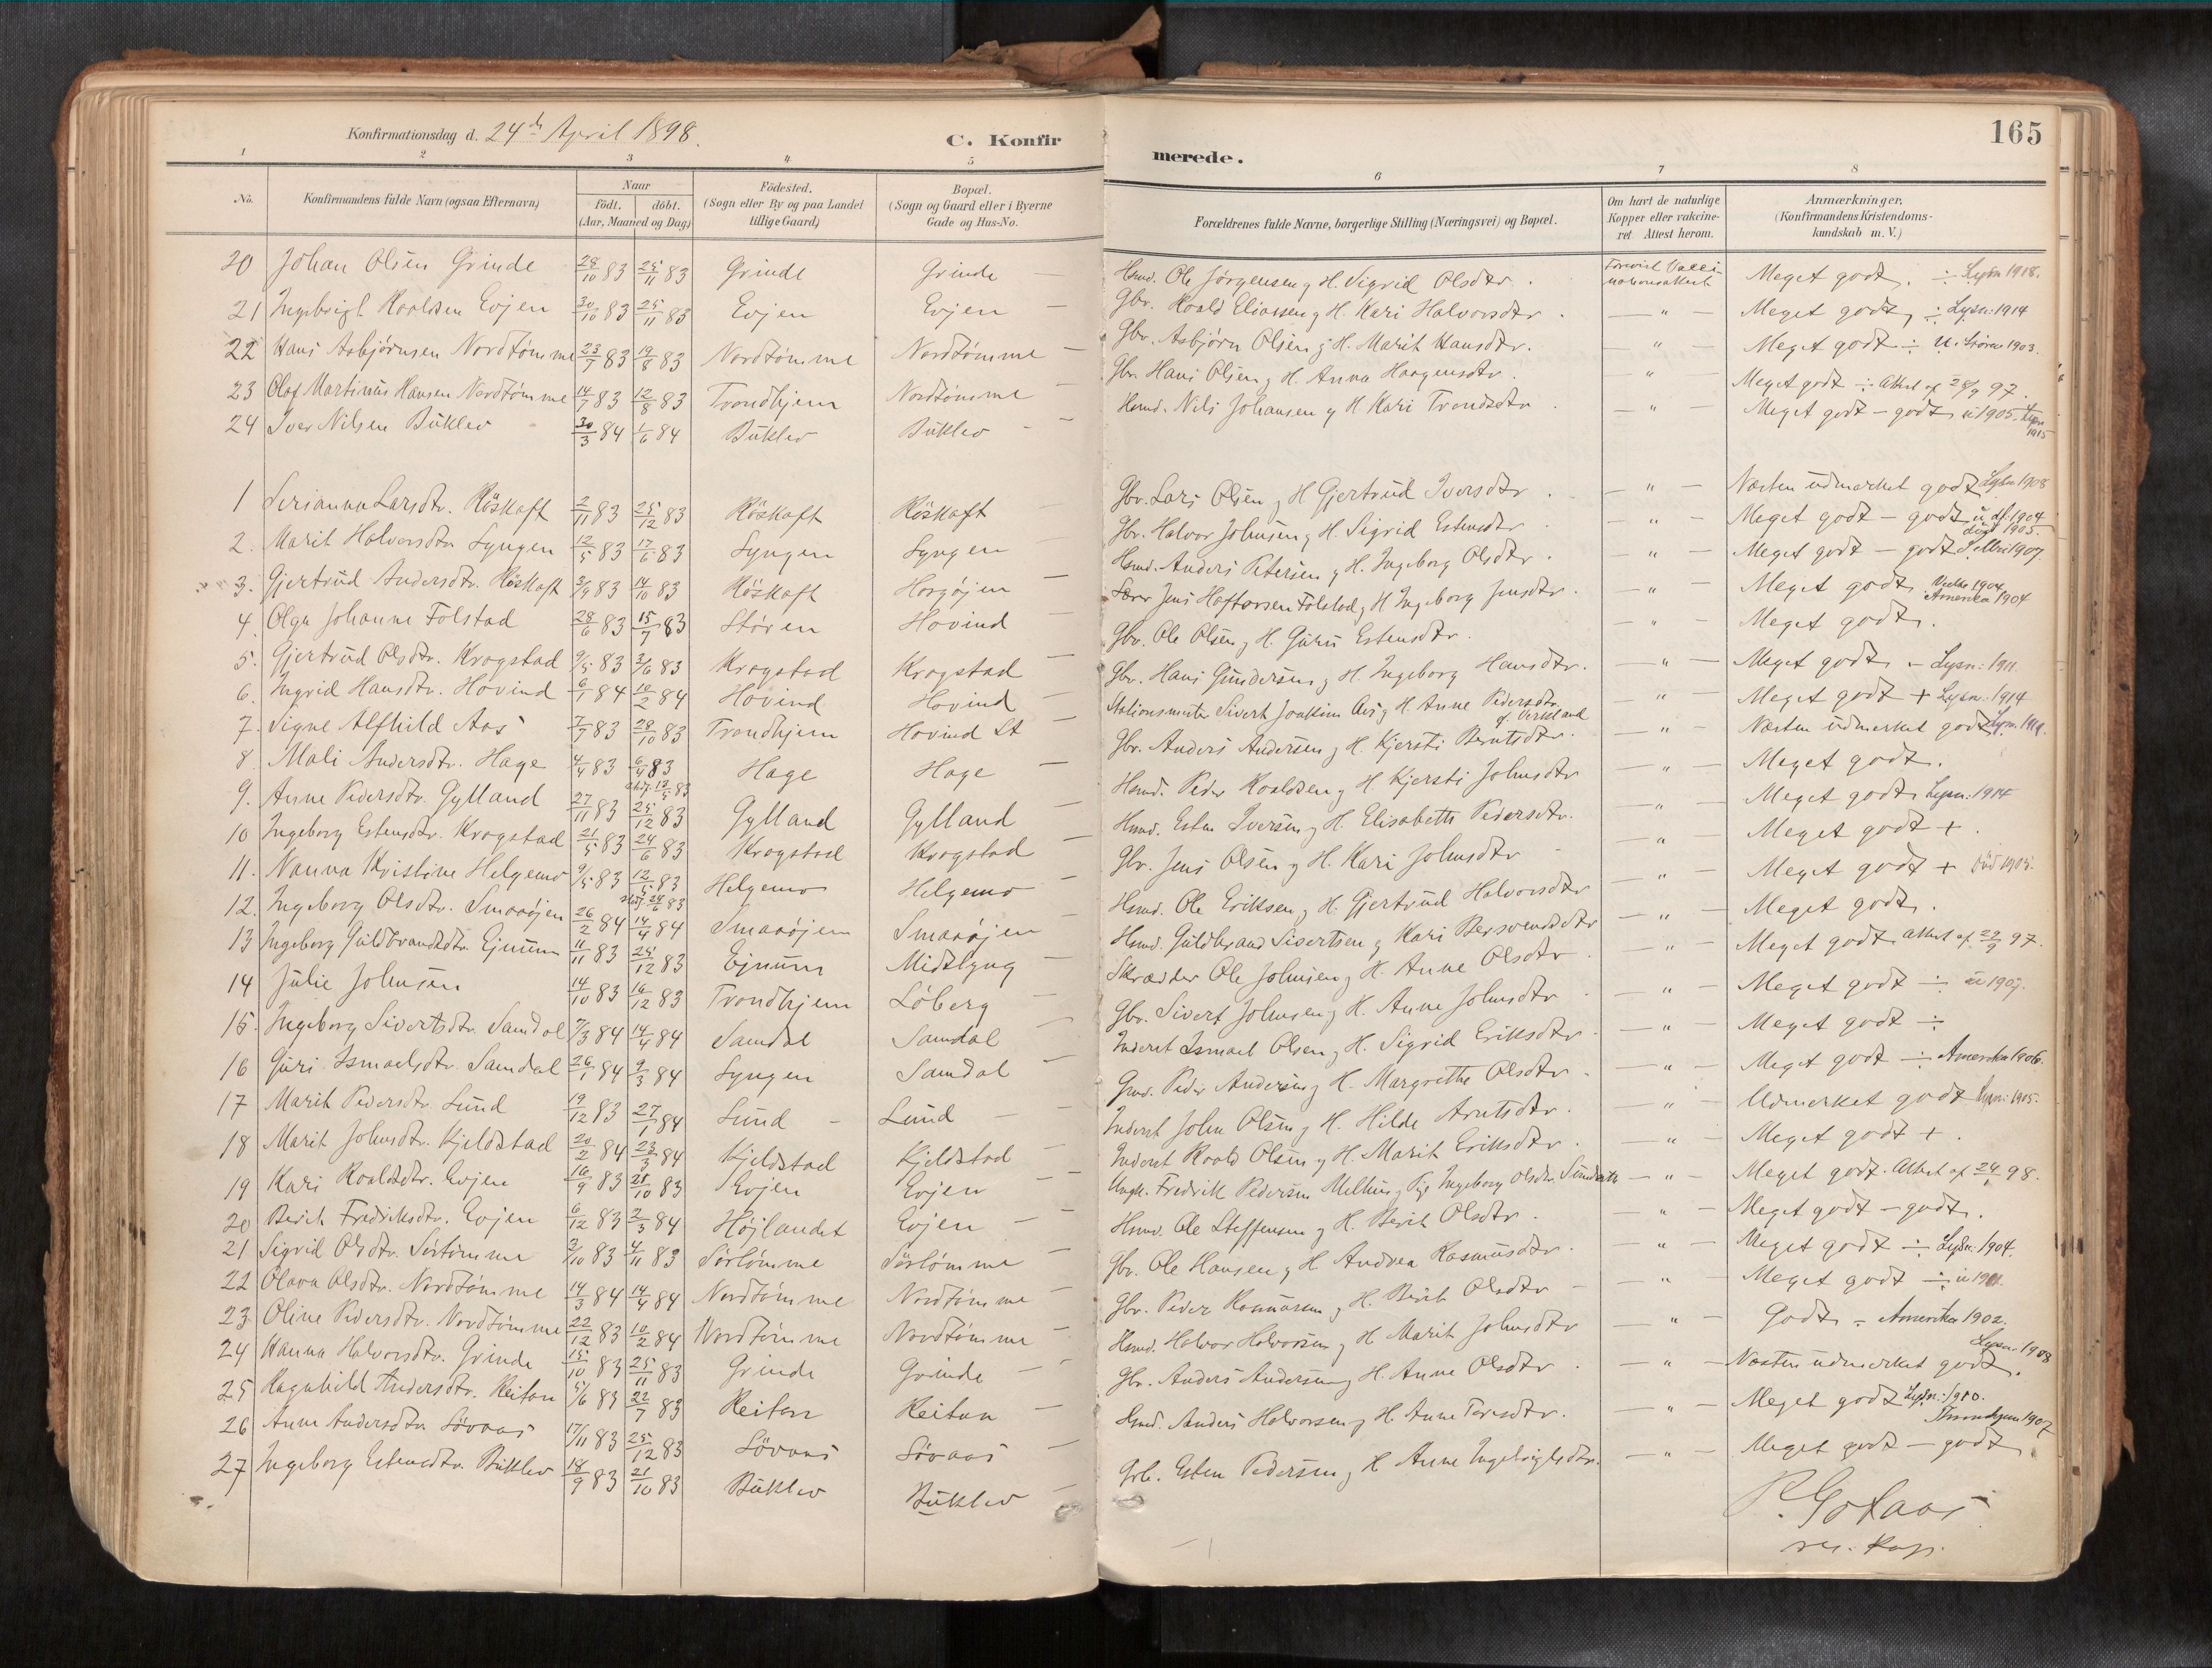 Konfirmationsdag d. 24de April 1898.
C. Konfirmerede.
165
1 2 3 4 5 6 7 8
No. Konfirmandens fulde Navn (ogsaa Efternavn) Naar födt. döbt. (Aar, Maaned og Dag) Födested. (Sogn eller By og paa Landet tillige Gaard) Bopæl. (Sogn og Gaard eller i Byerne Gade og Hus-No. Forældrenes fulde Navne, borgerlige Stilling (Næringsvei) og Bopæl. Om havt de naturlige Kopper eller vakcineret Attest herom. Anmærkninger. (Konfirmandens Kristendomskundskab m. V.)
20 Johan Olsen Grinde 28/10 83 25/11 83 Grinde Grinde — Hsmd. Ole Jørgensen og H. Sigrid Olsdtr. Meget godt. ÷ Lysn 1918.
21 Ingebrigt Roaldsen Evjen 30/10 83 25/11 83 Evjen Evjen — Gbr. Roald Eliassen og H. Kari Halvorsdtr. — " — Meget godt, ÷ Lysn: 1914
22 Hans Asbjörnsen Nordtömme 23/7 83 19/8 83 Nordtömme Nordtömme — Gbr. Asbjörn Olsen og H. Marit Hansdtr. — " — Meget godt ÷ u. Støren 1903.
23 Olaf Martinus Hansen Nordtömme 14/7 83 12/8 83 Trondhjem Nordtömme Gbr. Hans Olsen og H. Anna Haagensdtr. " Meget godt ÷ Attest af 28/9 97.
24 Iver Nilsen Büklev 30/3 84 1/6 84 Büklev Büklev — Hsmd. Nils Johansen og H Kari Trondsdtr. — " — Meget godt – godt u 1905. Lysn 1915
1 Serianna Larsdtr. Röskaft 2/11 83 25/12 83 Röskaft Röskaft Gbr. Lars Olsen og H Gjertrud Iversdtr. — " — Næsten udmærket godt Lysn 1908
2. Marit Halvorsdtr. Lyngen 12/5 83 17/6 83 Lyngen Lyngen — Gbr. Halvor Johnsen og H. Sigrid Estensdtr. — " — Meget godt – godt
3. Gjertrud Andersdtr. Röskaft 3/9 83 14/10 83 Röskaft Horgöjen — Hsmd. Anders Petersen og H. Ingeborg Olsdtr. — " — Meget godt – godt 1907.
4 Olga Johanne Folstad 28/6 83 15/7 83 Støren Hovind Lærer Jens Haftorsen Folstad og H Ingeborg Jensdtr. — " — Meget godt Amerika 1904
5. Gjertrud Olsdtr. Krogstad 9/5 83 3/6 83 Krogstad Krogstad — Gbr. Ole Olsen og H. Guru Estensdtr. — " — Meget godt.
6. Ingrid Hansdtr. Hovind 6/1 84 10/2 84 Hovind Hovind — Gbr. Hans Gundersen og H. Ingeborg Hansdtr. — " — Meget godt – Lysn: 1911.
7. Signe Alfhild Aas 7/7 83 28/10 83 Trondhjem Hovind St Stationsmester Sivert Joakim Aas og H. Anne Pedersdtr. " Meget godt + Lysn. 1914
8. Mali Andersdtr. Hage 4/4 83 6/4 83 Hage Hage — Gbr. Anders Andersen og H. Kjersti Berntsdtr. — " — Næsten udmærket godt
9. Anne Pedersdtr. Gylland 27/11 83 25/12 83 Gylland Gylland Hsmd. Peder Roaldsen og H. Kjersti Johnsdtr — " — Meget godt.
10 Ingeborg Estensdtr. Krogstad 21/5 83 24/6 83 Krogstad Krogstad Hsmd. Esten Iversen og H. Elisabeth Pedersdtr. — " — Meget godt Lysn: 1914
11. Nanna Kristine Helgemo 9/5 83 12/5 83 Helgemo Helgemo Gbr. Jens Olsen og H. Kari Johnsdtr — " Meget godt +.
12. Ingeborg Olsdtr. Smaaöjen 26/2 84 14/4 84 Smaaöjen Smaaöjen Hsmd. Ole Eriksen og H. Gjertrud Halvorsdtr — " — Meget godt + Död 1905.
13 Ingeborg Guldbrandsdtr. Ejnum 11/11 83 25/12 83 Ejnum Midtlyng Hsmd. Guldbrand Sivertsen og Kari Bersvendsdtr — " — Meget godt.
14 Julie Johnsen 14/10 83 16/12 83 Trondhjem Löberg — Skrædder Ole Johnsen og H. Anne Olsdtr — " — Meget godt Attest af 29/9 97.
15. Ingeborg Sivertsdtr. Samdal 7/3 84 14/4 84 Samdal Samdal Gbr. Sivert Johnsen og H. Anne Johnsdtr — " — Meget godt ÷ u 1907.
16 Guri Ismaelsdtr. Samdal 26/1 84 9/3 84 Lyngen Samdal — Inderst Ismael Olsen og H. Sigrid Eriksdtr — " — Meget godt ÷
17 Marit Pedersdtr. Lund 19/12 83 27/1 84 Lund – Lund — Gmd. Peder Andersen og H. Margrethe Olsdtr — " — Meget godt ÷ Amerika 1906.
18 Marit Johnsdtr. Kjeldstad 20/2 84 23/3 84 Kjeldstad Kjeldstad — Inderst John Olsen og H. Hilde Arntsdtr. — " — Udmærket godt Lysn: 1905.
19 Kari Roaldsdtr. Evjen 16/9 83 21/10 83 Evjen Evjen — Inderst Roald Olsen og H. Marit Eriksdtr. — " — Meget godt +.
20 Berit Fredriksdtr. Evjen 6/12 83 2/3 84 Højlandet Evjen — Ungk. Fredrik Pedersen Melhus og Pige Ingeborg Olsdtr. — " — Meget godt. Attest af 24/1 98.
21 Sigrid Olsdtr. Sörtömme 3/10 83 4/11 83 Sörtömme Sörtömme — Hsmd. Ole Steffensen og H. Berit Olsdtr. — " — Meget godt – godt.
22 Olava Olsdtr. Nordtömme 14/3 84 14/4 84 Nordtömme Nordtömme — Gbr. Ole Hansen og H Andrea Rasmusdtr. — " — Meget godt ÷ Lysn. 1904.
23. Oline Pedersdtr. Nordtömme 22/12 83 10/2 84 Nordtömme Nordtömme — Gbr. Peder Rasmusen og H. Berit Olsdtr — " — Meget godt ÷ u 1901.
24 Hanna Halvorsdtr. Grinde 15/10 83 25/11 83 Grinde Grinde — Hsmd. Halvor Halvorsen og H Marit Johnsdtr — " — Godt. – Amerika 1902.
25 Ragnhild Andersdtr. Reitan 5/6 83 22/7 83 Reitan Reitan — Gbr. Anders Andersen og H. Anne Olsdtr — " — Næsten udmærket godt. Lysn: 1908
26 Anne Andersdtr. Sövaas 17/11 83 25/12 83 Sövaas Sövaas — Hsmd. Anders Halvorsen og H. Anne Toresdtr. — " — Meget godt Lysn: 1910.
27 Ingeborg Estensdtr. Büklev 18/9 83 21/10 83 Büklev Büklev — Grb. Esten Pedersen og H Anne Ingebrigtsdtr. — " — Meget godt – godt Trondhjem 1907
P. Gotaas
res. Kap.